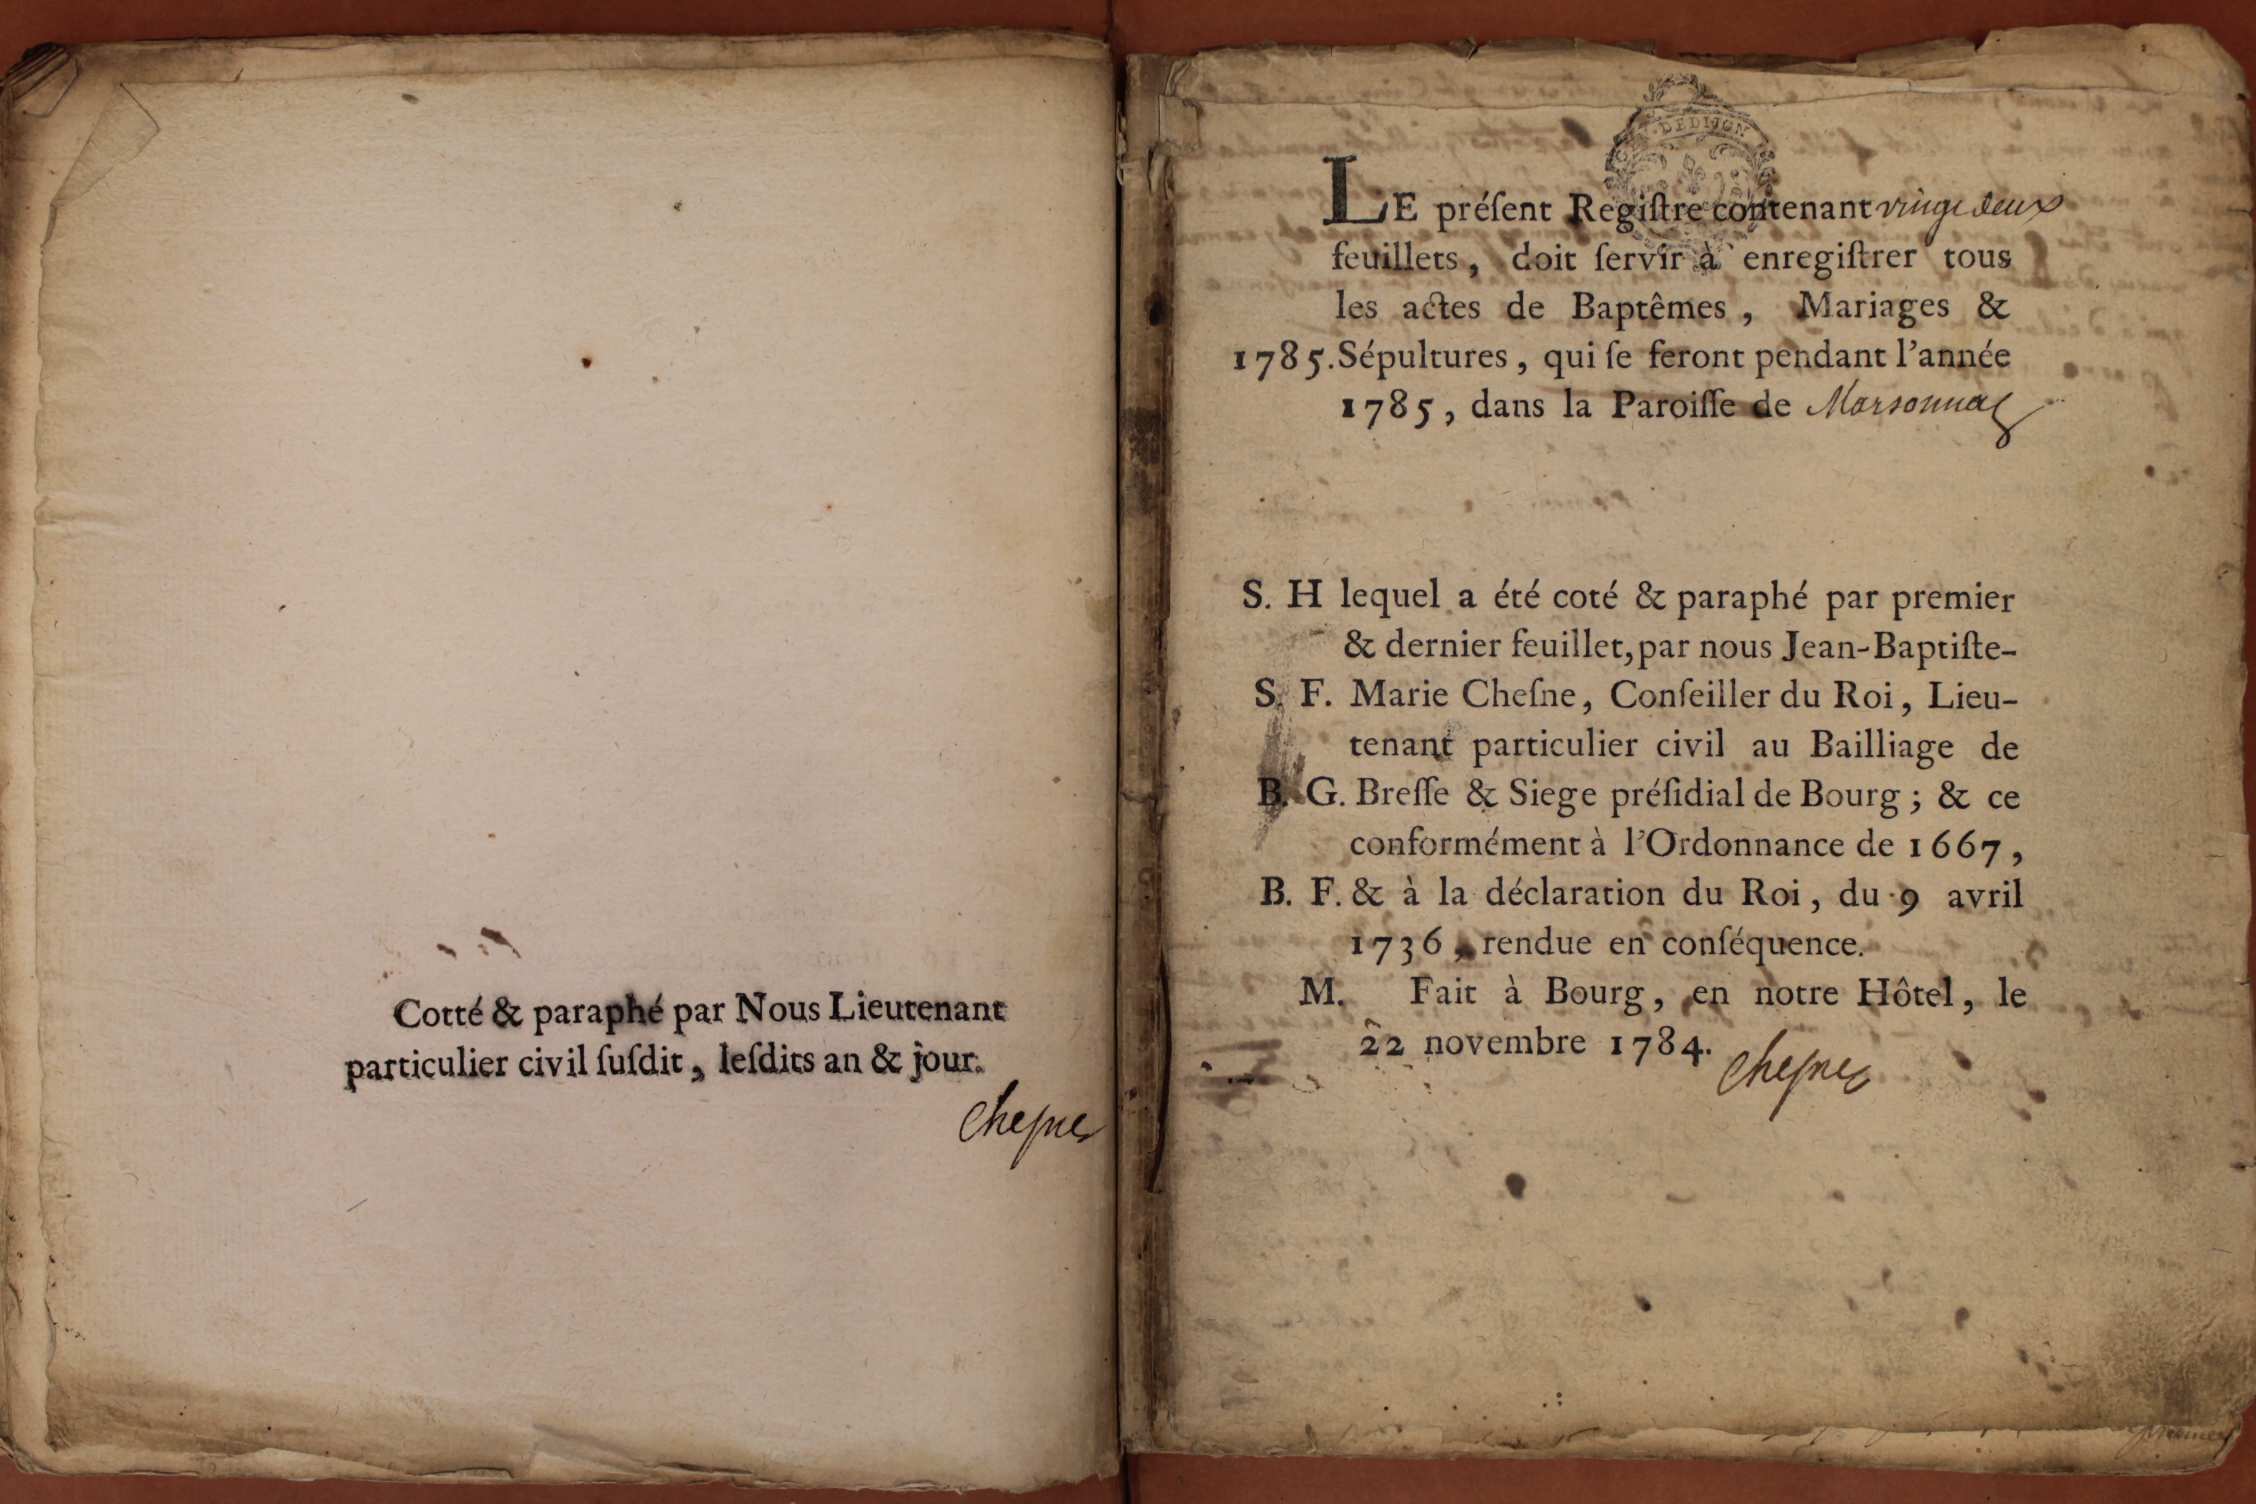 Cotté & paraphé par Nous Lieutenant
particulier civil ſuſdit, leſdits an & jour.
Cheſne
DE DIJON
LE préſent Regiſtre contenant vingt deux
feuillets, doit ſervir à enregiſtrer tous
les actes de Baptêmes, Mariages &
1785. Sépultures, qui ſe feront pendant l'année
1785, dans la Paroiſſe de Marsonnas
S. H lequel a été coté & paraphé par premier
& dernier feuillet, par nous Jean-Baptiſte-
S. F. Marie Cheſne, Conſeiller du Roi, Lieu-
tenant particulier civil au Bailliage de
B. G. Breſſe & Siege préſidial de Bourg; & ce
conformément à l'Ordonnance de 1667,
B. F. & à la déclaration du Roi, du 9 avril
1736, rendue en conſéquence.
M. Fait à Bourg, en notre Hôtel, le
22 novembre 1784.
Cheſne